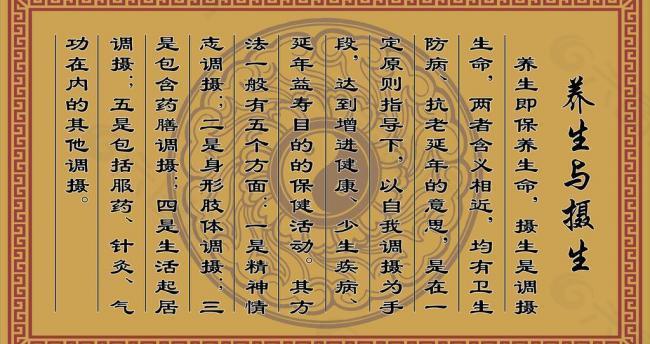 养生与摄生
养生即保养生命，摄生是调摄
生命，两者含义相近，均有卫生
防病、抗老延年的意思，是在一
定原则指导下，以自我调摄为手
段，达到增进健康、少生疾病、
延年益寿目的的保健活动。其方
法一般有五个方面：一是精神情
志调摄；二是身形肢体调摄；三
是包含药膳调摄；四是生活起居
调摄；五是包括服药、针灸、气
功在内的其他调摄。